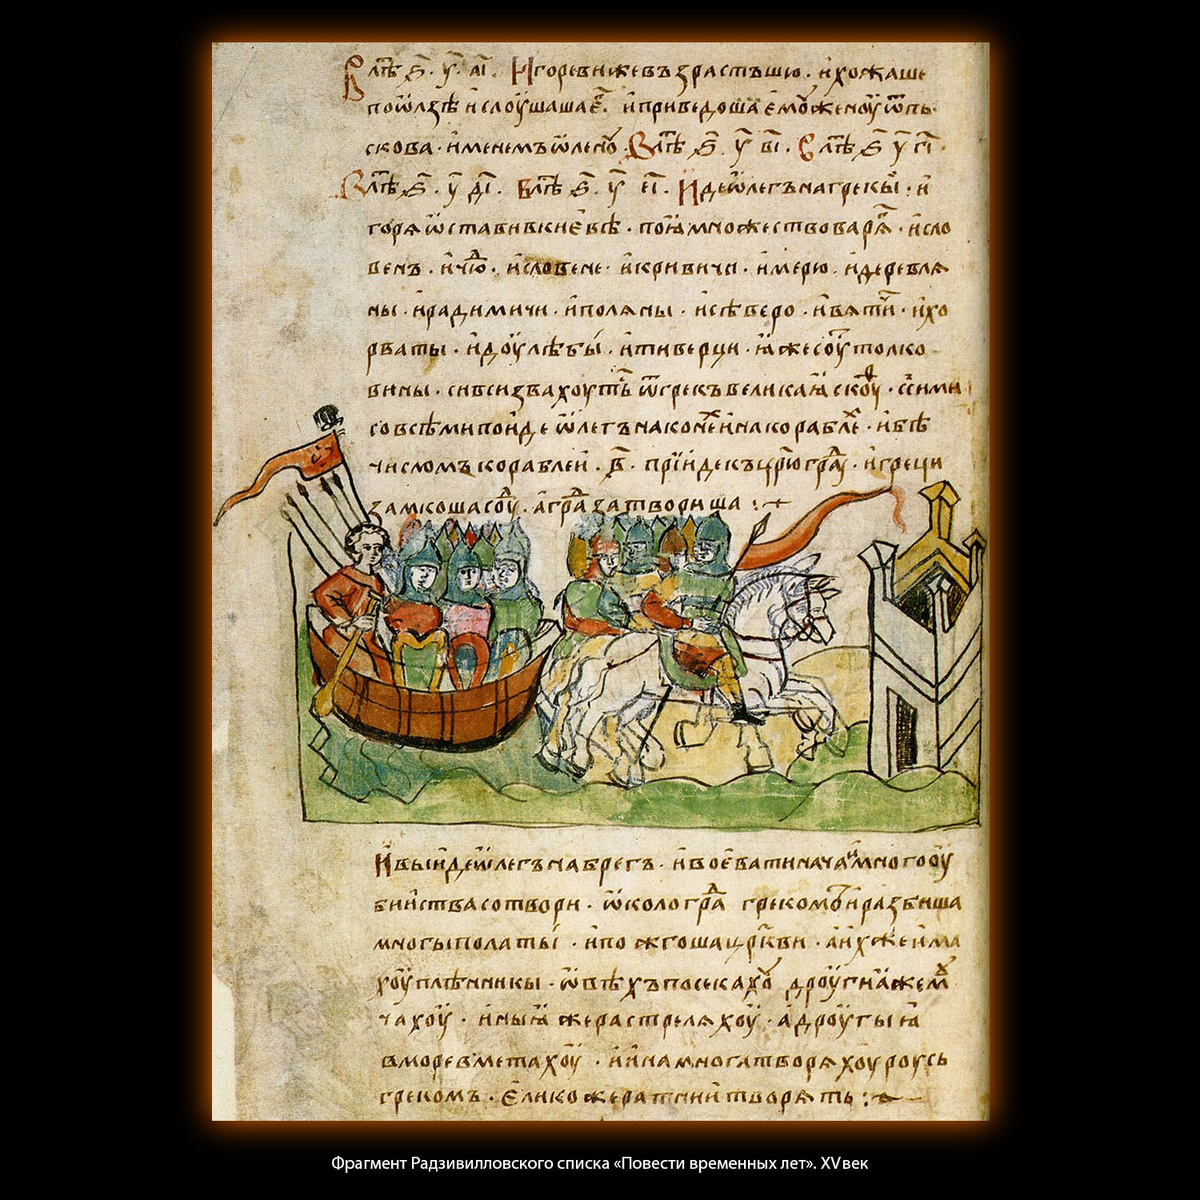 В лѣⷮ ҂ѕ҃. у҃. аı҃. Игореви же възрастъшю. и хожаше
по ѡлзѣ и слоушаша єⷢ҇. и приведоша ємоу женоу ѿ пь
скова. именемъ ѡленоу. В лѣⷮ ҂ѕ҃. у҃ вı҃. В лѣⷮ ҂ѕ҃ у҃ гı҃.
В лѣⷮ ҂ѕ҃. у҃ дı҃. В лѣⷮ ҂ѕ҃. у҃ еı҃. Иде ѡлегъ на грекы. и
горя ѡставив киевѣ. поıа множество варяⷢ҇. и сло
венъ. и чюⷣ. и словене. и кривичи. и мерю. и деревля
ны. и радимичи. и поляны. и сѣверо. и вятичи. и хо
рваты. и доулѣбы. и тиверци. ıаже соуⷮ толко
вины. си вси звахоутьⷭ ѿ грекъ великаıа скоуⷴ. с сими
со всѣми поиде ѡлегъ на конеⷯ и на кораблеⷯ. и бѣ
числомъ кораблеи. в҃. приидекъ црⷭ҇ю граⷣу. и греци
замкоша соуⷣ. а граⷣ затвориша :
И выиде ѡлегъ на брегъ. и воевати нача и много оу
биıства сотвори. ѡколо граⷣа грекомъ и разбиша
многы полаты. и пожгоша црⷪкви. а ихже има
хоу плѣнникы. ѡвѣхъ посекахоу дроугиıа же моу
чахоу. иныıа же растреляхоу. а дроугыıа
в море вметахоу. и ина многа творяхоу роусь
грекомъ. єлико же ратнии творять :
Фрагмент Радзивилловского списка «Повести временных лет». XV век